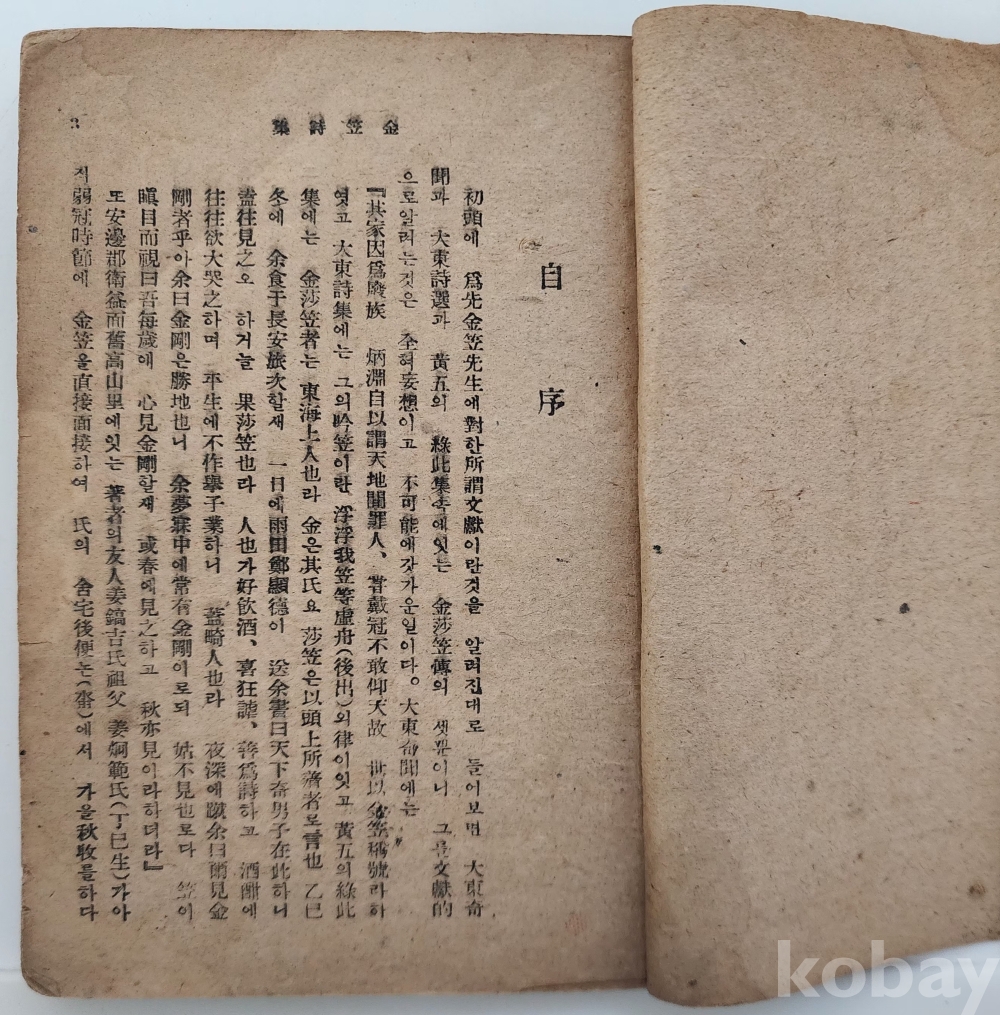 金笠詩集
3
自序
初頭에 爲先金笠先生에對한所謂文獻이란것을 알려진대로 들어보면 大東奇
聞과 大東詩選과 黃五의 綠此集속에잇는 金莎笠傳의 셋뿐이니 그를文獻的
으로알려는것은 全혀妄想이고 不可能에갓가운일이다。大東奇聞에는
『其家因爲廢族 炳淵自以謂天地間罪人、甞戴冠不敢仰天故 世以金笠稱號라하
엿고 大東詩集에는 그의吟笠이란 浮浮我笠等虛舟(後出)의律이잇고 黃五의綠此
集에는 金莎笠者는 東海上人也라 金은其氏요 莎笠은以頭上所著者로言也 乙巳
冬에 余食于長安旅次할새 一日에雨田鄭顯德이 送余書曰天下奇男子在此하니
盍往見之오 하거늘 果莎笠也라 人也가好飮酒、喜狂謔、善爲詩하고 酒酣에
往往欲大哭之하며 平生에不作擧子業하니 蓋畸人也라 夜深에蹴余曰爾見金
剛者乎아余曰金剛은勝地也니 余夢寐中에常有金剛이로되 姑不見也로다 笠이
瞋目而視曰吾每歲에 心見金剛할새 或春에見之하고 秋亦見이라하더라』
또安邊郡衛益面舊高山里에잇는 著者의友人姜鎬吉氏祖父 姜炯範氏(丁巳生)가아
직弱冠時節에 金笠을直接面接하여 氏의 舍宅後便논(畓)에서 가을秋收를하다
kobay